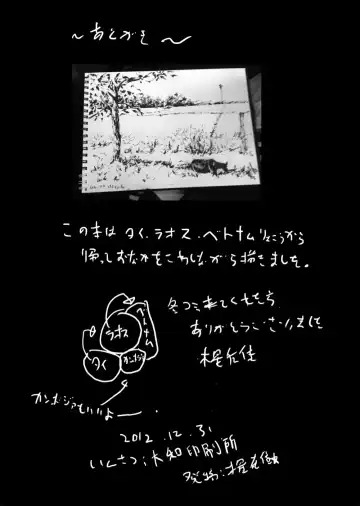 ～あとがき～
この本は タイ、ラオス、ベトナムりょこうから
帰っておなかをこわしながら描きました。
冬コミ来てくださった方
ありがとうございました
ラオス
ベトナム
タイ
カンボジア
カンボジアもいいよー
2012.12.31
いんさつ:大知印刷所
発行: